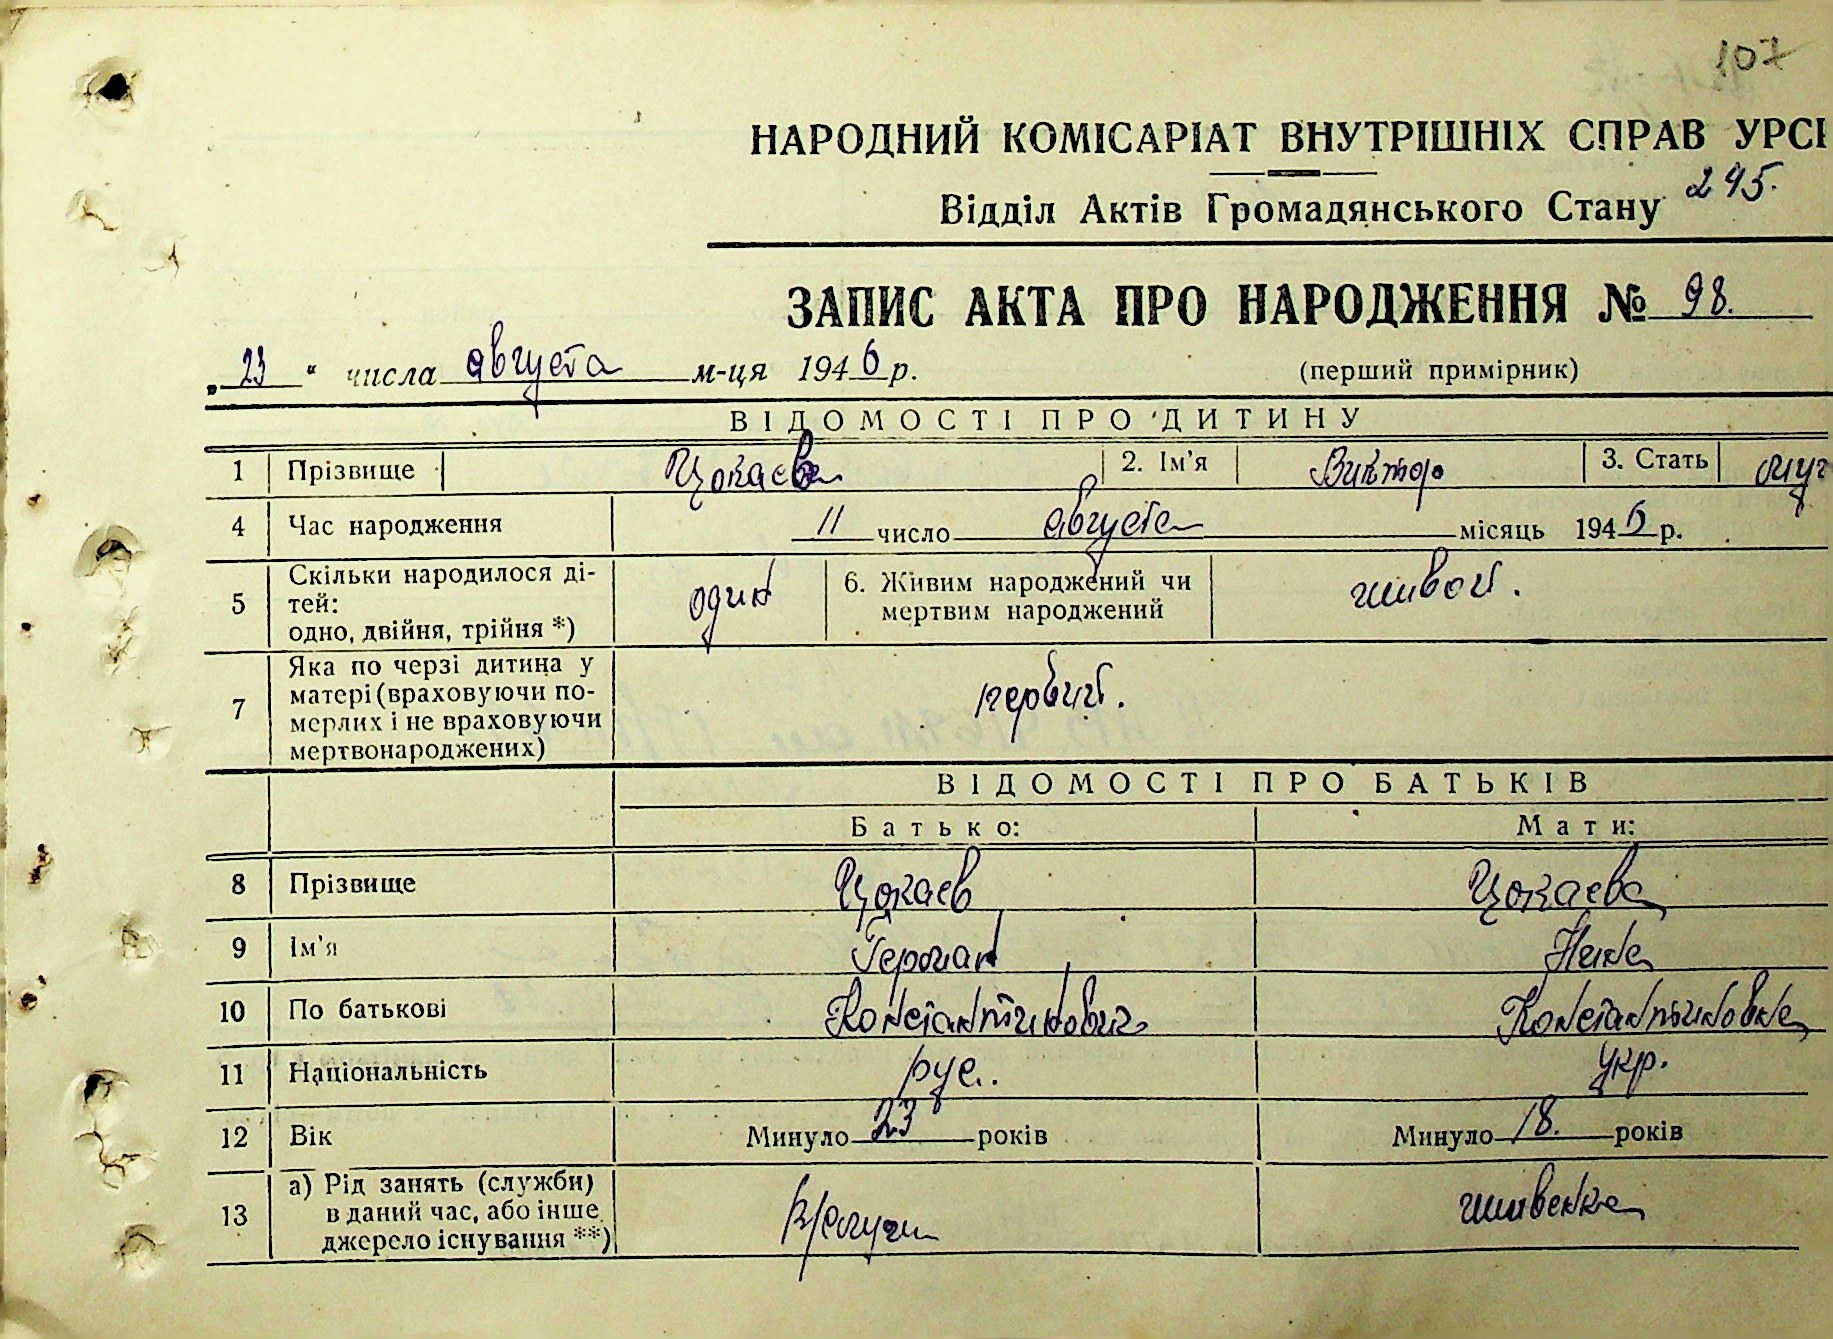 107
НАРОДНИЙ КОМІСАРІАТ ВНУТРІШНІХ СПРАВ УРСР
Відділ Актів Громадянського Стану 245.
ЗАПИС АКТА ПРО НАРОДЖЕННЯ № 98.
„23“ числа августа м-ця 1946 р. (перший примірник)
ВІДОМОСТІ ПРО ДИТИНУ
1 Прізвище Цокаев 2. Ім'я Виктор 3. Стать муж
4 Час народження 11 число августа місяць 1946 р.
5 Скільки народилося ді-
тей:
одно, двійня, трійня *) один 6. Живим народжений чи
мертвим народжений живой.
7 Яка по черзі дитина у
матері (враховуючи по-
мерлих і не враховуючи
мертвонароджених) первый.
ВІДОМОСТІ ПРО БАТЬКІВ
Батько: Мати:
8 Прізвище Цокаев Цокаева
9 Ім'я Герман Нина
10 По батькові Константинович Константиновна
11 Національність рус. укр.
12 Вік Минуло 23 років Минуло 18. років
13 а) Рід занять (служби)
в даний час, або інше
джерело існування **) в/служ